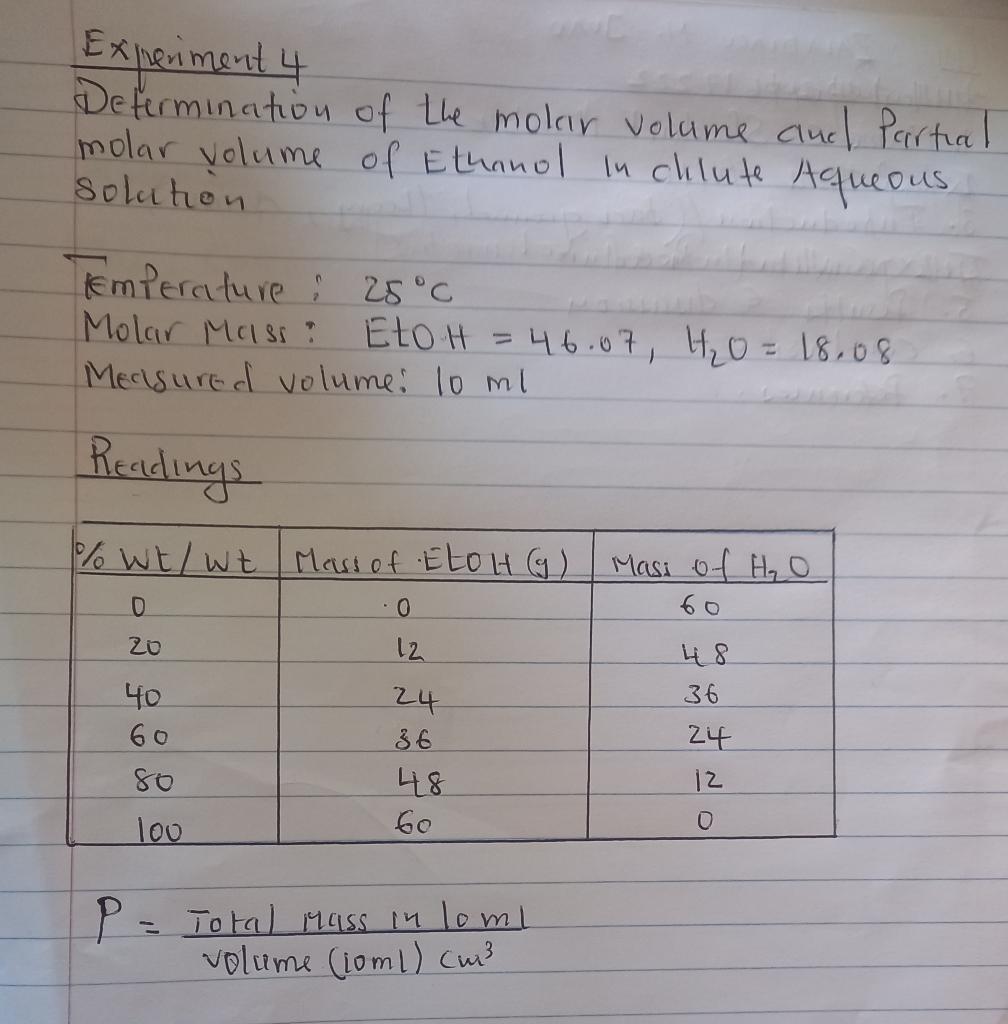 Experiment 4
Determination of the molar volume and Partial
molar volume of Ethanol in dilute Aqueous
Solution
Temperature : 25°C
Molar Mass : EtOH = 46.07, H₂O = 18.08
Measured volume: 10 ml
Readings
% Wt/Wt Mass of EtOH (g) Mass of H₂O
0 0 60
20 12 48
40 24 36
60 36 24
80 48 12
100 60 0
P = Total Mass in 10ml
volume (10ml) cm³